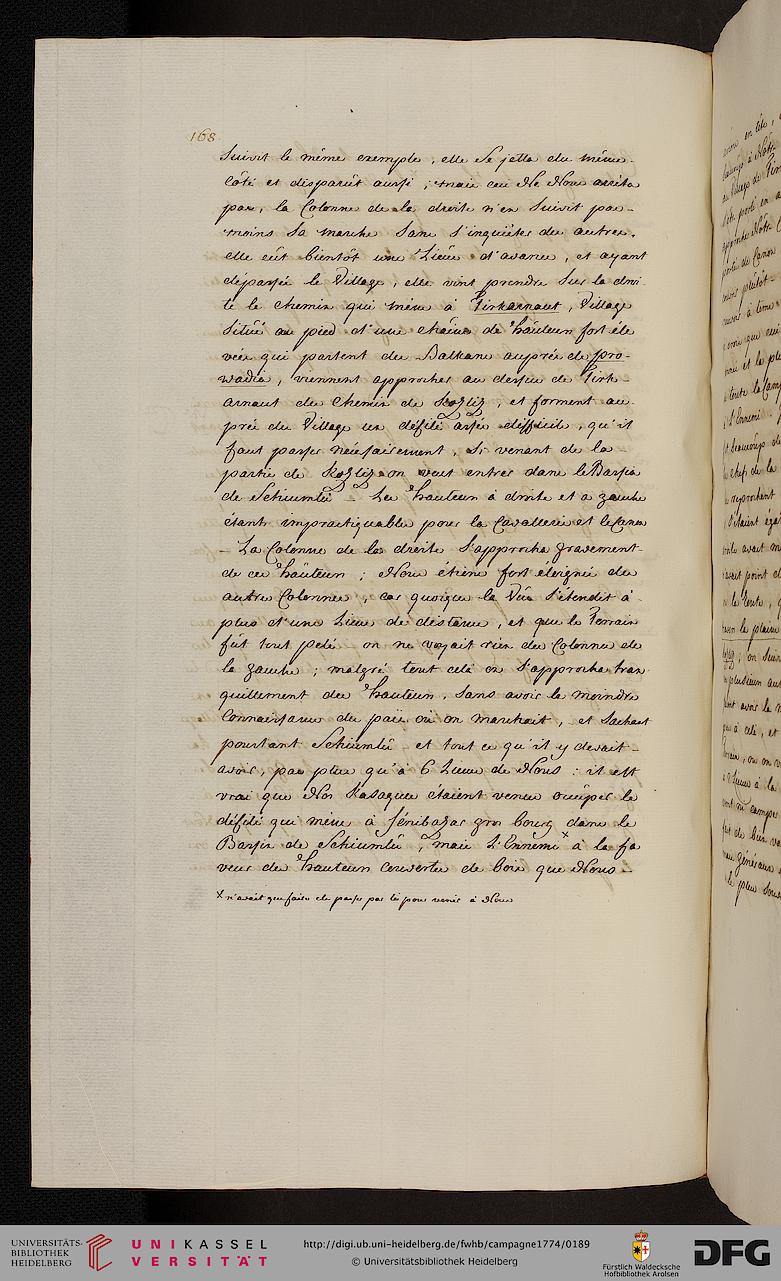 168
suivit le même exemple, elle se jetta du même
côté et disparût aussi; mais ceci Ne Nous arrêta
pas, la Colonne de la droite n'en suivit pas
moins sa marche sans s'inquièter des autres.
elle eût bientôt une Lieüe d'avance, et ayant
dépassée le Village, elle vint prendre sur la droi-
te le chemin qui mène à Pirkarnaut, Village
situé au pied d'une chaine de hauteurs fort éle
vées qui partent du Balkans auprès de pro-
wadia, viennent approcher au dessus de Pirk-
arnaut du Chemin de Kozliz, et forment au-
près du Village un défilé assés difficile, qu'il
faut passer nécessairement, si venant de la
partie de Kozliz on veut entrer dans le Bassin
de Schiumlü - Les hauteurs à droite et a gauche
étants impractiquables pour la Cavallerie et le Canon
- La Colonne de la droite s'approcha gravement
de ces hauteurs; Nous étions fort éloignés des
autres Colonnes, car quoique la Vüe s'étendit à
plus d'une Lieue de distance, et que le Terrain
fût tout pelé on ne voyait rien des Colonnes de
la gauche; malgré tout celà on s'approcha tran
quillement des hauteurs, sans avoir la moindre
Connaissance du païs où on marchait, et sachant
pourtant Schiumlü et tout ce qu'il y devait
avoir, pas plus qu'à 6 Lieues de Nous: il est
vrai que Nos Kasaques étaient venus occuper le
défilé qui mène à Jénibazar gros bourg dans le
Bassin de Schiumlü, mais L'Ennemi x à la fa
veur des hauteurs couvertes de bois que Nous
x n'avait que faire de passer par là pour venir à Nous
UNIVERSITÄTS-
BIBLIOTHEK
HEIDELBERG
UNIKASSEL
VERSITÄT
http://digi.ub.uni-heidelberg.de/fwhb/campagne1774/0189
© Universitätsbibliothek Heidelberg
Fürstlich Waldecksche
Hofbibliothek Arolsen
DFG